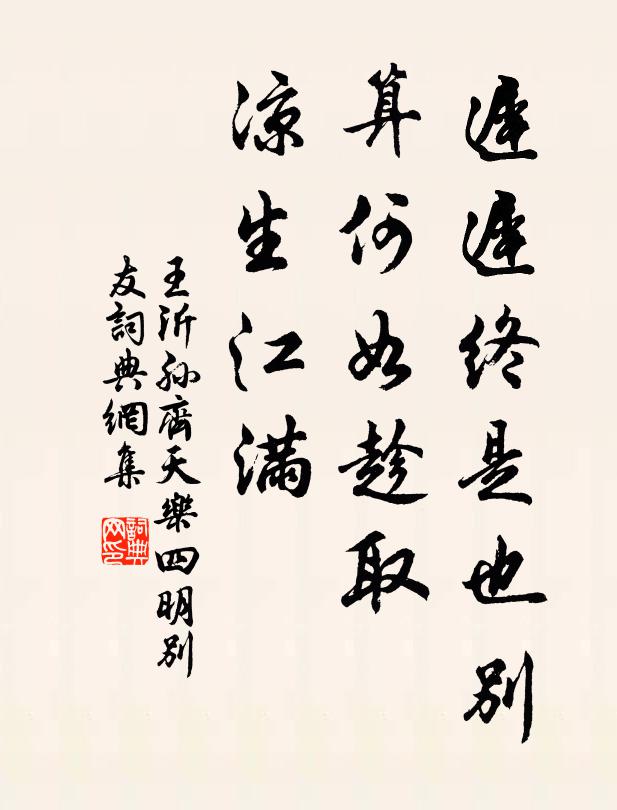 遲遲終是也別
算何如趁取
涼生江滿
王沂孫齊天樂四明別
友詞典網集
詞典
网印